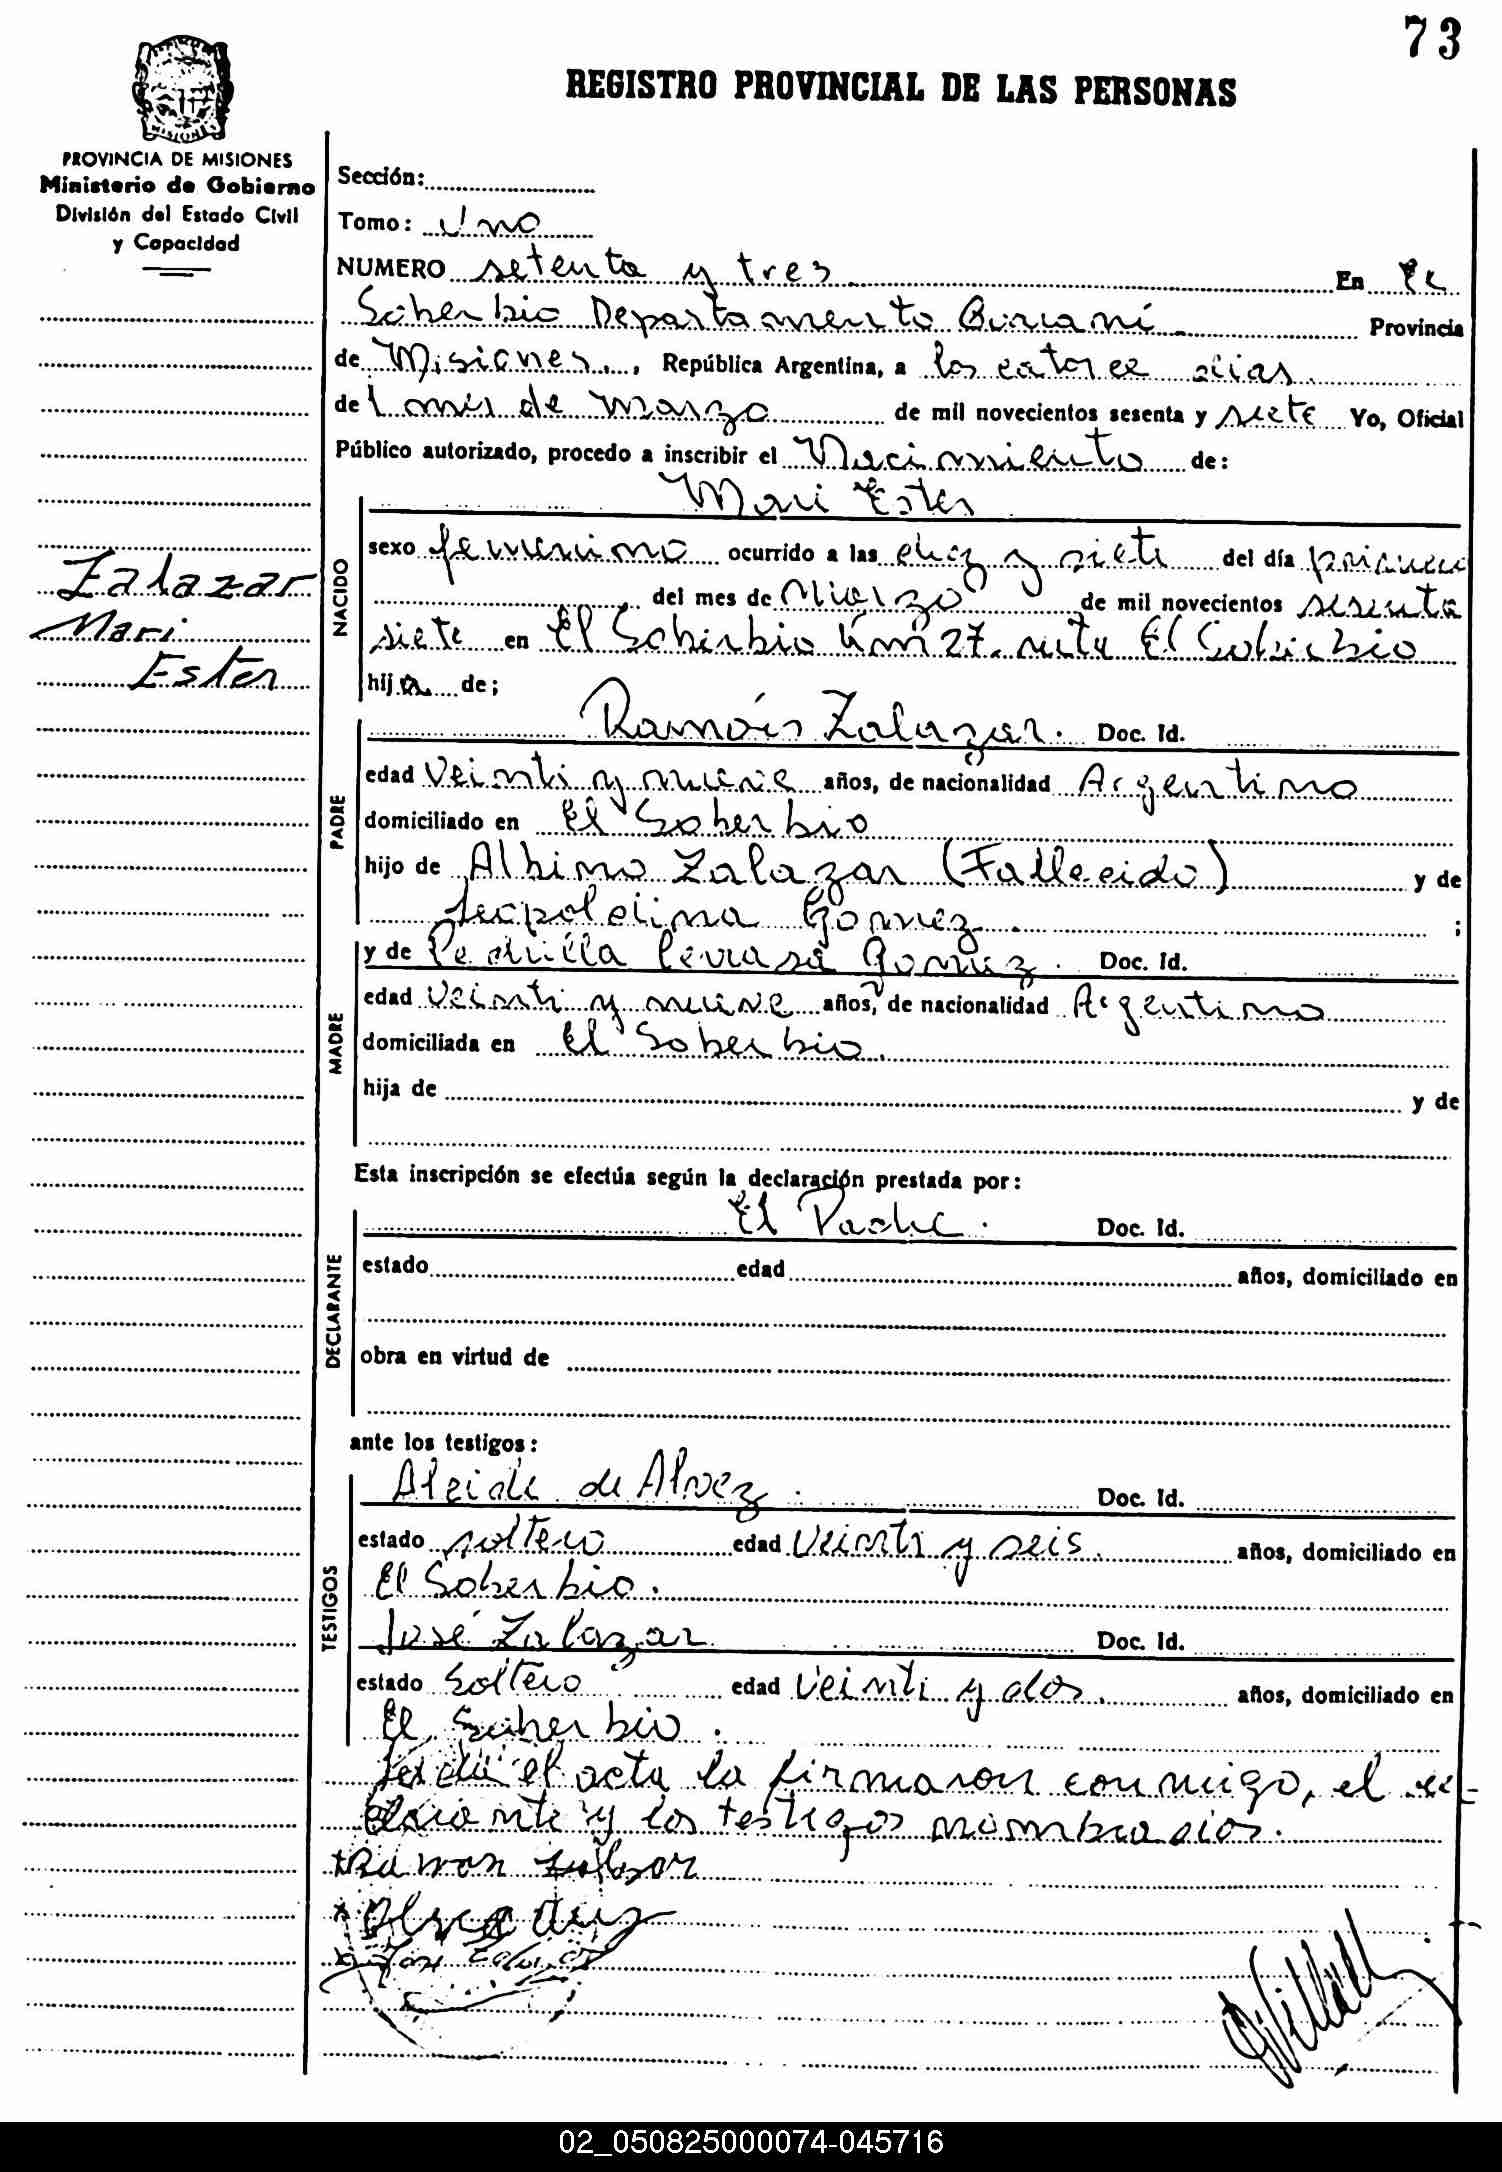 73
REGISTRO PROVINCIAL DE LAS PERSONAS
MISIONES
PROVINCIA DE MISIONES
Ministerio de Gobierno
División del Estado Civil
y Capacidad
Zalazar
Mari
Ester
Sección:
Tomo: Uno
NUMERO setenta y tres En El
Soberbio Departamento Guraní Provincia
de Misiones, República Argentina, a los catorce dias
del mes de marzo de mil novecientos sesenta y siete Yo, Oficial
Público autorizado, procedo a inscribir el Nacimiento de:
Mari Ester
NACIDO
sexo femenino ocurrido a las diez y siete del día primero
del mes de Marzo de mil novecientos sesenta
siete en El Soberbio km 27. ruta El Soberbio
hija de;
PADRE
Ramón Zalazar. Doc. Id.
edad veinti y nueve años, de nacionalidad Argentino
domiciliado en El Soberbio
hijo de Albino Zalazar (Fallecido) y de
Leopoldina Gomez ;
MADRE
y de Gomez. Doc. Id.
edad veinti y nueve años, de nacionalidad Argentino
domiciliada en El Soberbio.
hija de y de
Esta inscripción se efectúa según la declaración prestada por:
DECLARANTE
El Padre. Doc. Id.
estado edad años, domiciliado en
obra en virtud de
ante los testigos:
TESTIGOS
Alcide de Alvez. Doc. Id.
estado soltero edad veinti y seis. años, domiciliado en
El Soberbio.
José Zalazar Doc. Id.
estado Soltero edad veinti y dos. años, domiciliado en
El Soberbio.
el acta la firmaron conmigo, el de-
clarante y los testigos nombrados.
Ramon Zalazar
Jose
02_050825000074-045716